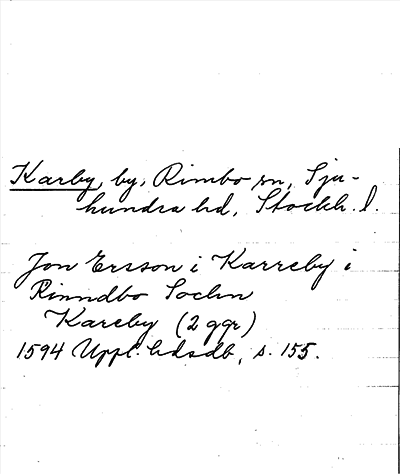 Karby, by, Rimbo sn, Sju-
hundra hd, Stockh. l.
Jon Ersson i Karreby i
Rinndbo Sochn
Kareby (2 ggr)
1594 Uppl. hdsdb, s. 155.